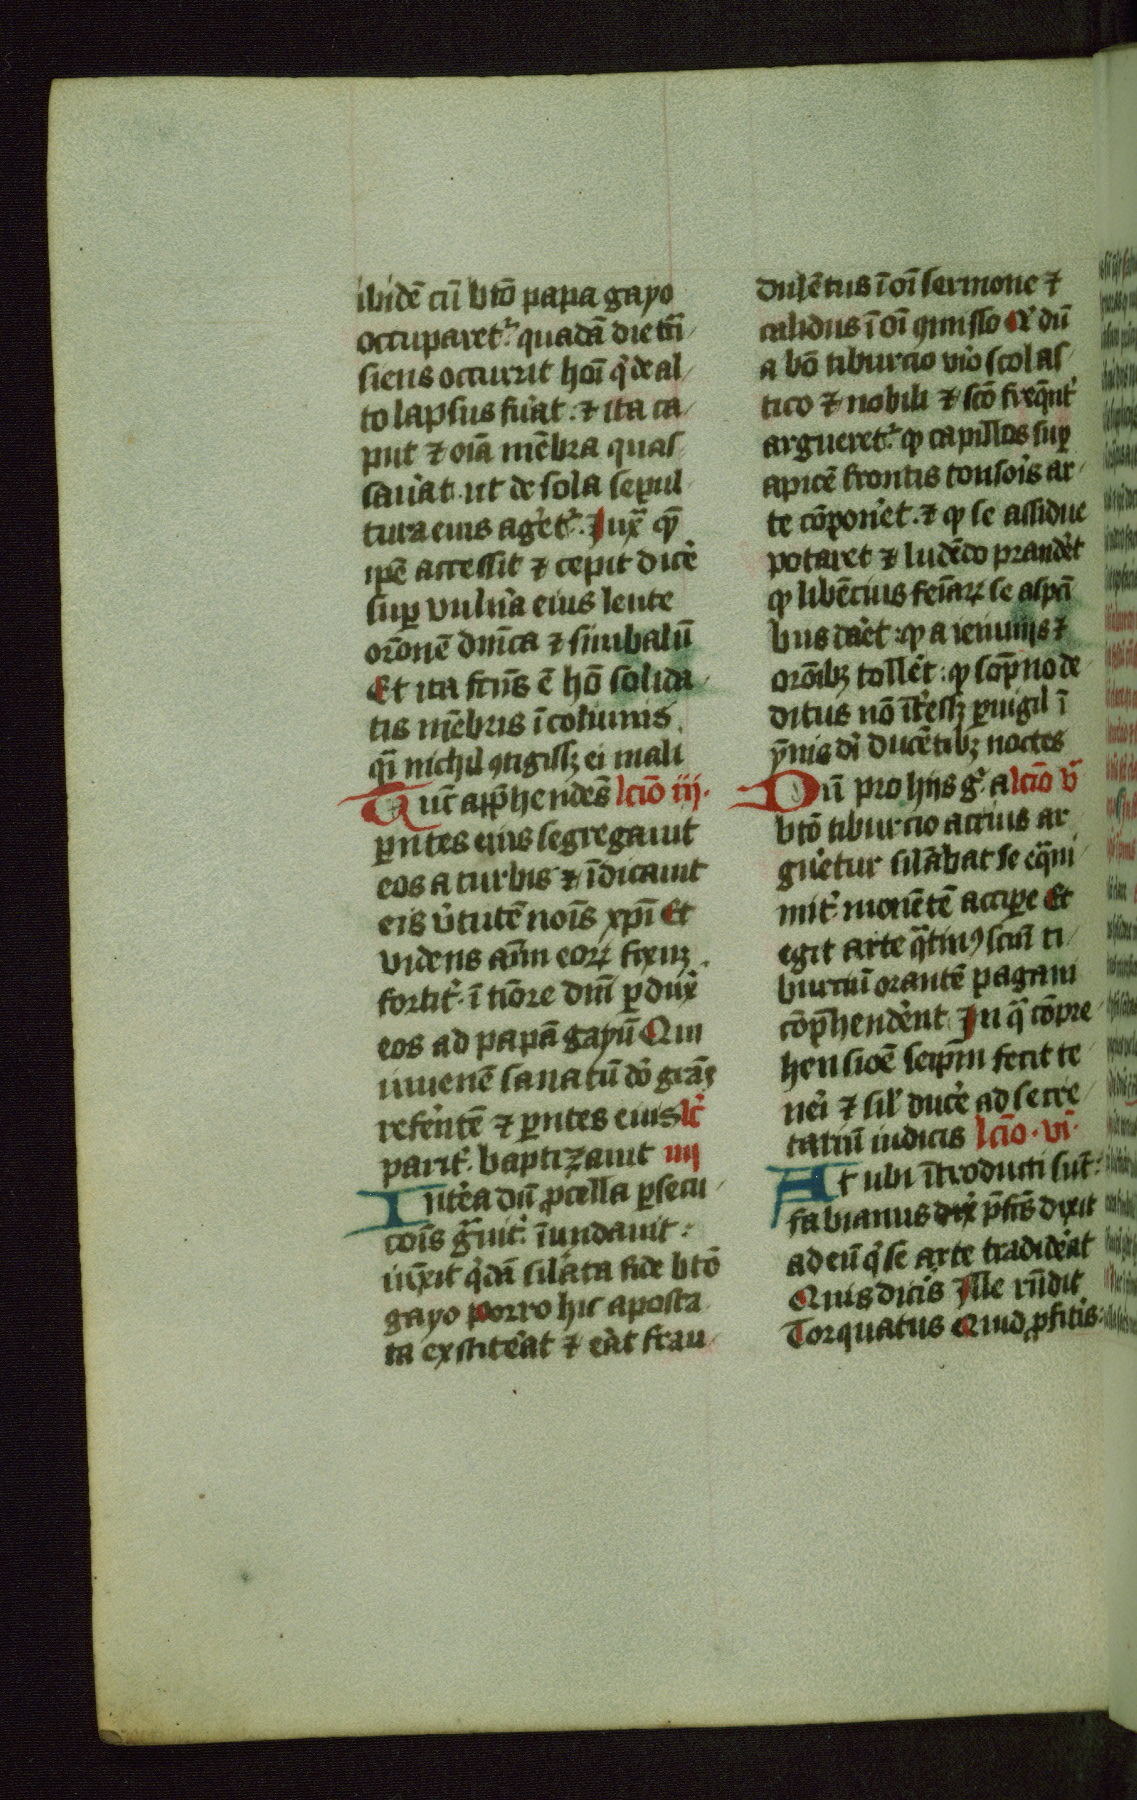 ibidē cū btō papa gayo
occuparet᷑ quadā die trā
siens occurrit hoī q̇ de al
to lapsus fuat᷑ ⁊ ita ca
put ⁊ oīa mēbra quas
sauāt. ut de sola sepul
tura eius aget᷑. Iux̄ qm̄
ipē accessit ⁊ cepit dicē
sup vulnīa eius lente
orōnē dnīca ⁊ simbalū
Et ita fcūs ē hō solida
tis mēbris īcolumis
qi nichil ɔtigissꝫ ei mali
Tūc apphendēs lcīo iij.
pntes eius segregauit
eos a turbis ⁊ īdicauit
eis v̇tutē noīs xpī Et
videns aīm eoꝝ fixuꝫ
fortit᷑ ī tiōre dnī pdux̄
eos ad papā gayū Qui
iuuenē sanatū dō grās
refentē ⁊ pntes eius lc̄
parit᷑ baptizauit iiij
Intea dū pcella psecu
coīs gūit᷑ īundauit
iūxit q̇dā silata fide btō
gayo porro hic aposta
ta exstiteāt ⁊ eāt frau
dulētus ī oī sermone ⁊
calidus ī oī ɔmisso Q dū
a bō tiburcio vīo scolas
tico ⁊ nobili ⁊ scō freqnt᷑
argueret᷑ ꝙ capillos sup
apicē frontis tonsoīs ar
te cōponet. ⁊ ꝙ se assidue
potaret ⁊ ludēdo prandet
ꝙ libēcius feīaꝝ se aspci
bus daet᷑. ꝙ a ieiunijs ⁊
orōibꝫ tollet᷑. ꝙ sopno de
ditus nō īteēssꝫ puigil ī
ynis dī ducētibꝫ noctes
Dū pro hijs g᷑ a lcīo v
btō tiburcio acrius ar
guetur silabat se eqni
mit᷑ monētē accipe Et
egit arte qtinꝰ scūi ti
burciū orantē pagani
cōphendent In q cōpre
hensiōe seipm fecit te
neri ⁊ sil' duce ad secre
tariū iudicis lcīo. vi.
At ubi ītroducti sūt:
fabianus dix̄ p̄fcs dixit
ad eū q̇ se arte tradideāt
Quis diceris Ille rn̄dit
Torquatus Quid pfitis: